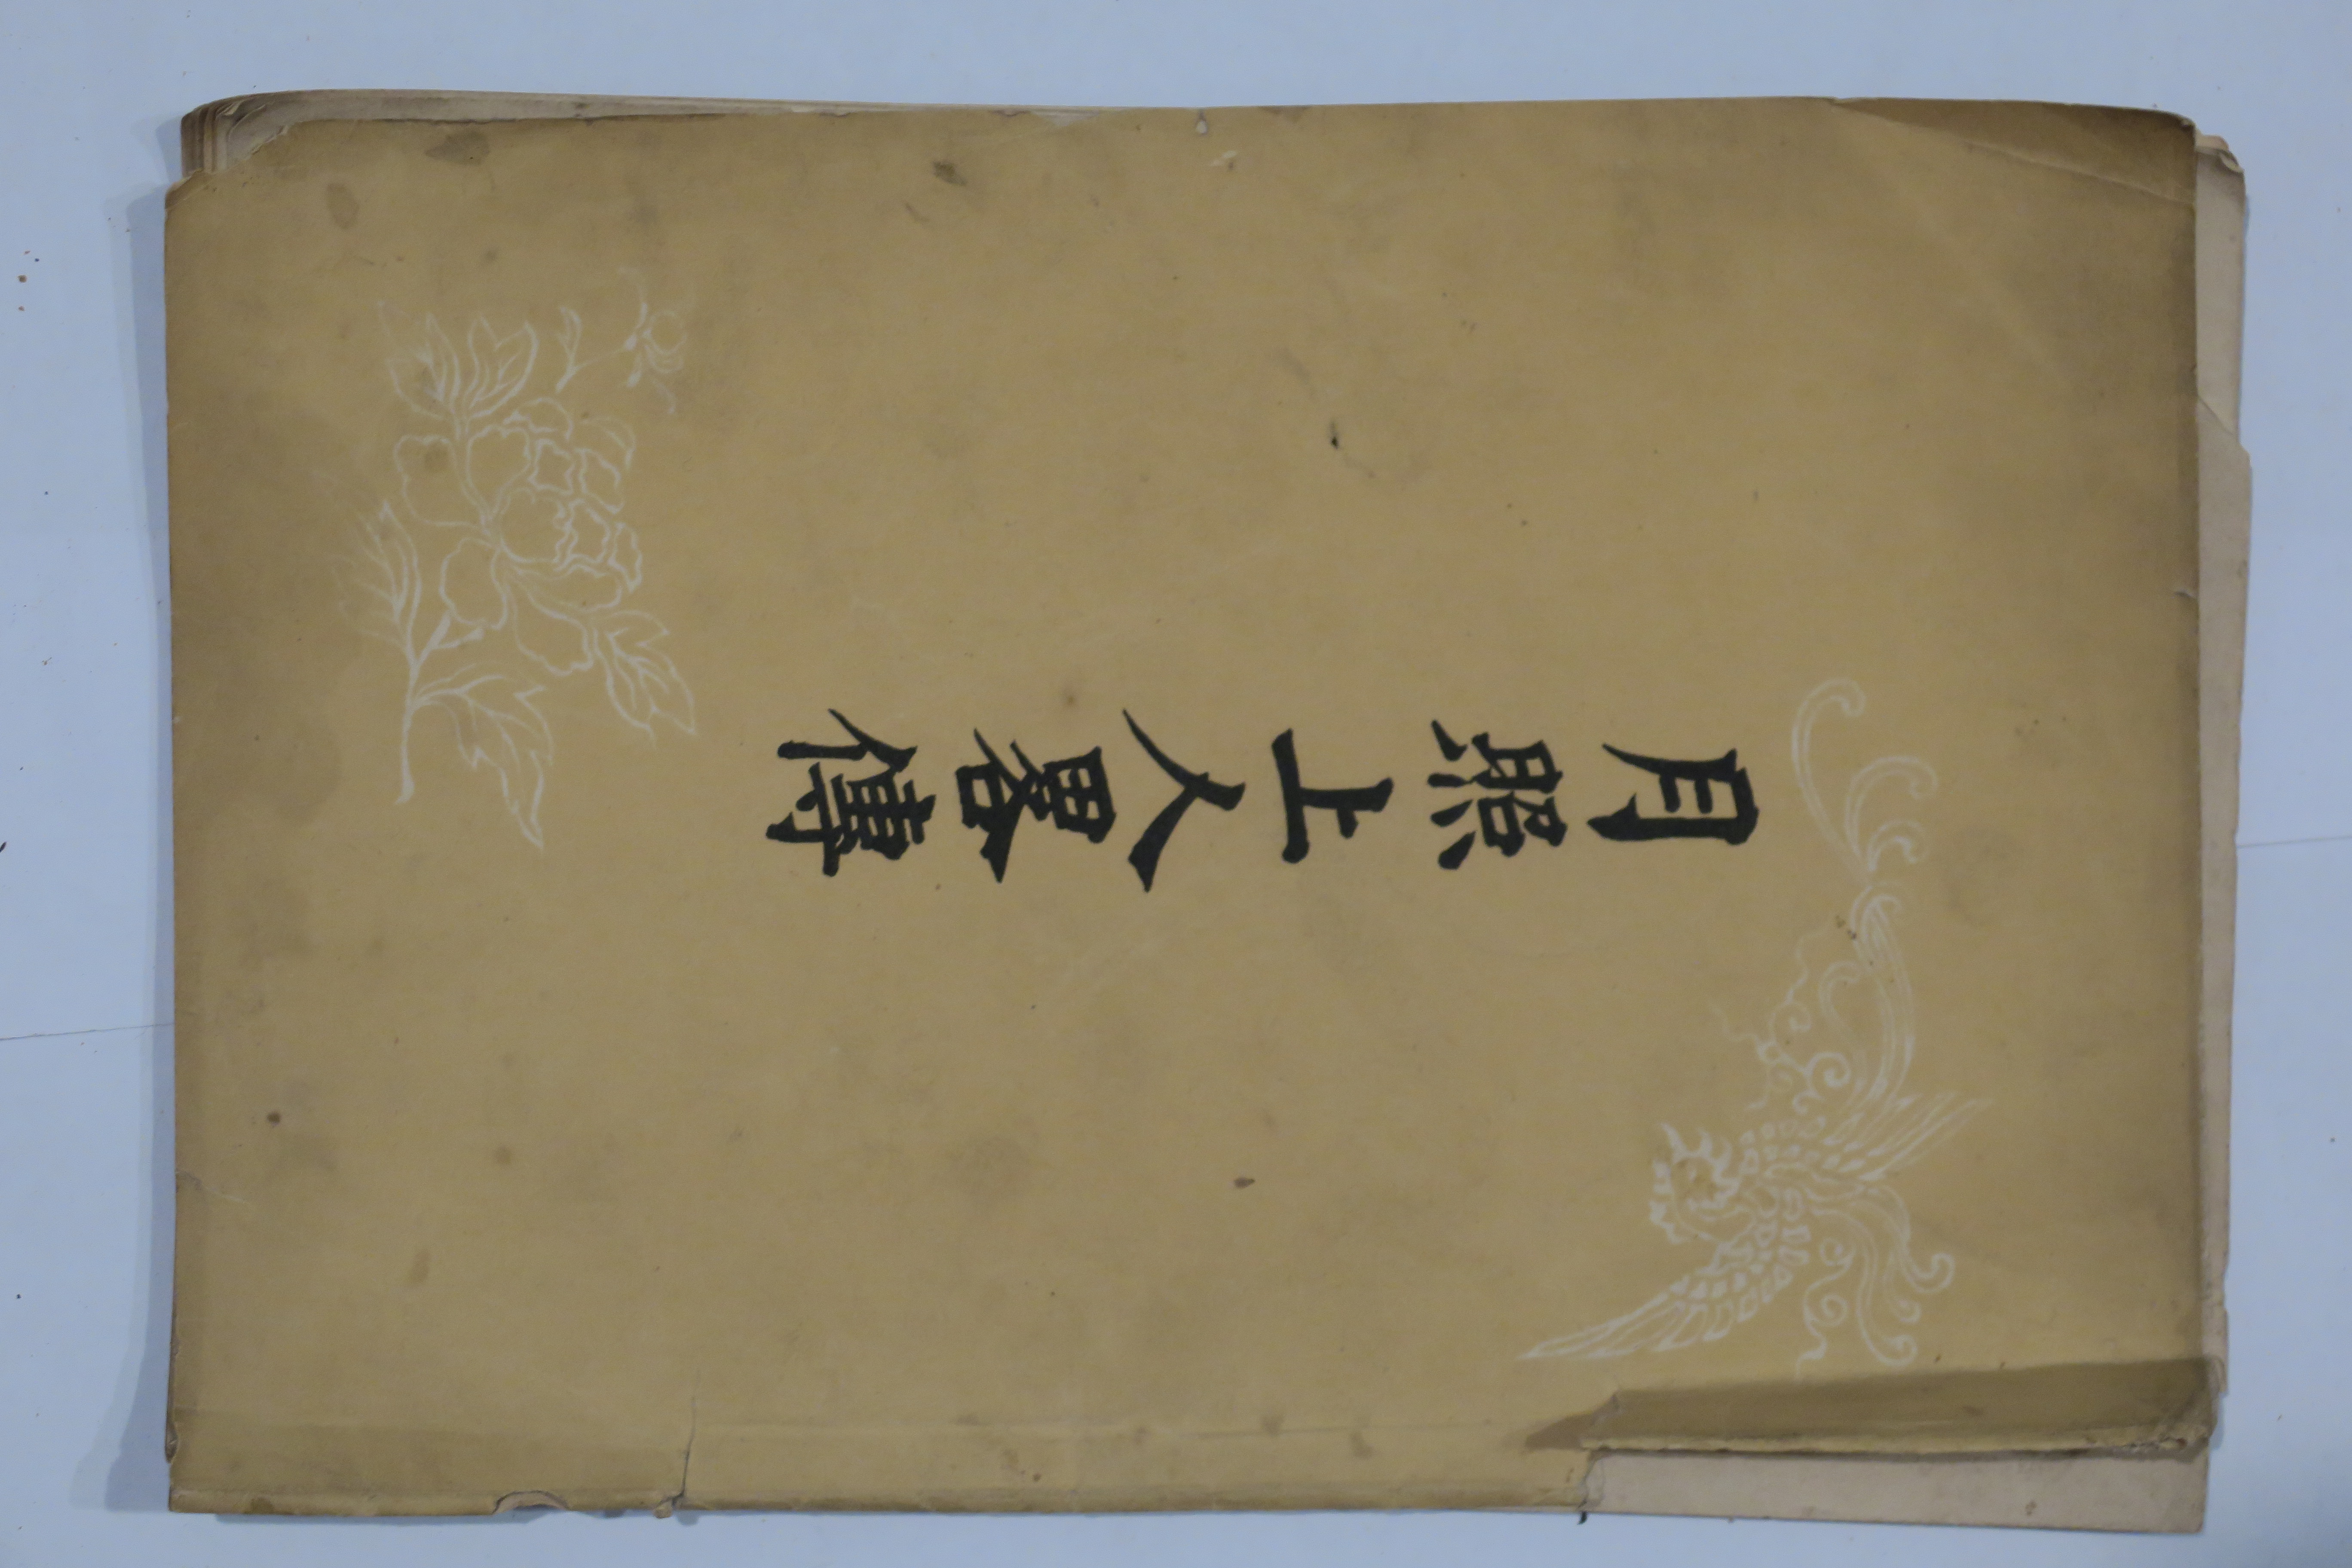 月照上人畧傳